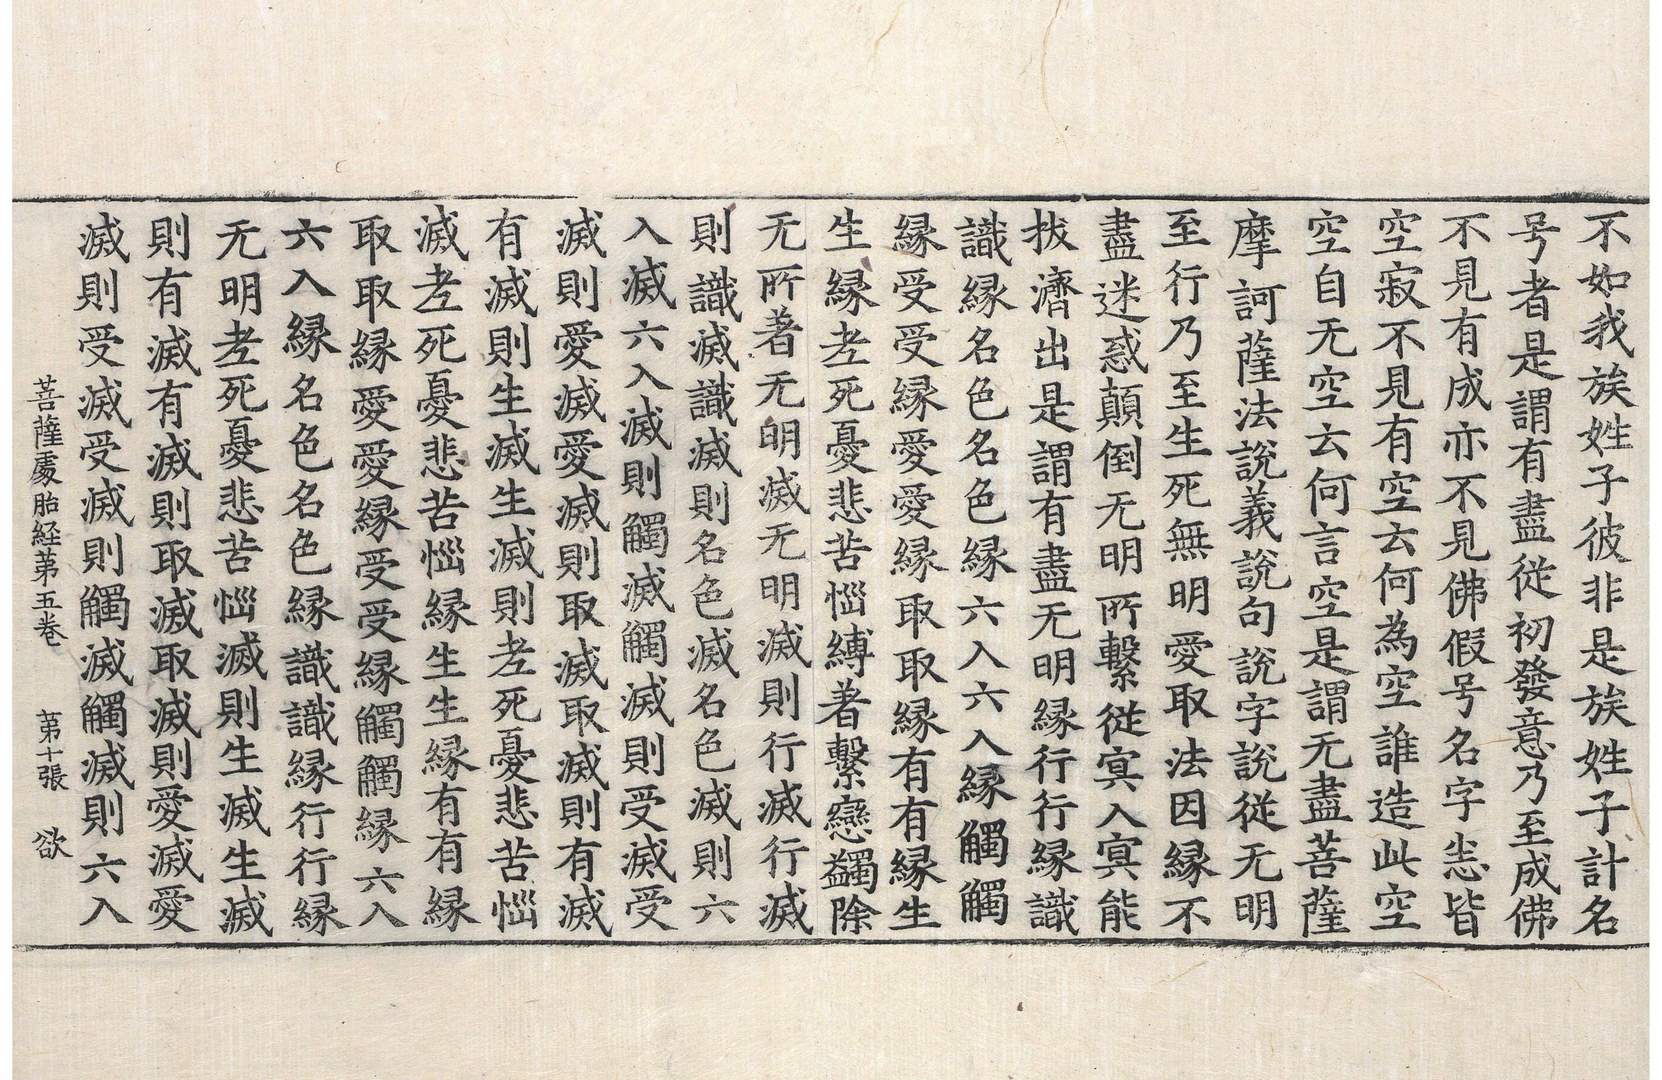 不如我族姓子彼非是族姓子計名
号者是謂有盡從初發意乃至成佛
不見有成亦不見佛假号名字恙皆
空寂不見有空云何為空誰造此空
空自无空云何言空是謂无盡菩薩
摩訶薩法說義說句說字說從无明
至行乃至生死無明愛取法因縁不
盡迷惑顛倒无明所繫從冥入冥能
拔濟出是謂有盡无明縁行行縁識
識縁名色名色縁六入六入縁觸觸
縁受受縁愛愛縁取取縁有有縁生
生縁老死憂悲苦惱縛著繫戀蠲除
无所著无明滅无明滅則行滅行滅
則識滅識滅則名色滅名色滅則六
入滅六入滅則觸滅觸滅則受滅受
滅則愛滅愛滅則取滅取滅則有滅
有滅則生滅生滅則老死憂悲苦惱
滅老死憂悲苦惱縁生生縁有有縁
取取縁愛愛縁受受縁觸觸縁六入
六入縁名色名色縁識識縁行行縁
无明老死憂悲苦惱滅則生滅生滅
則有滅有滅則取滅取滅則愛滅愛
滅則受滅受滅則觸滅觸滅則六入
菩薩處胎経第五卷 第十張 欲